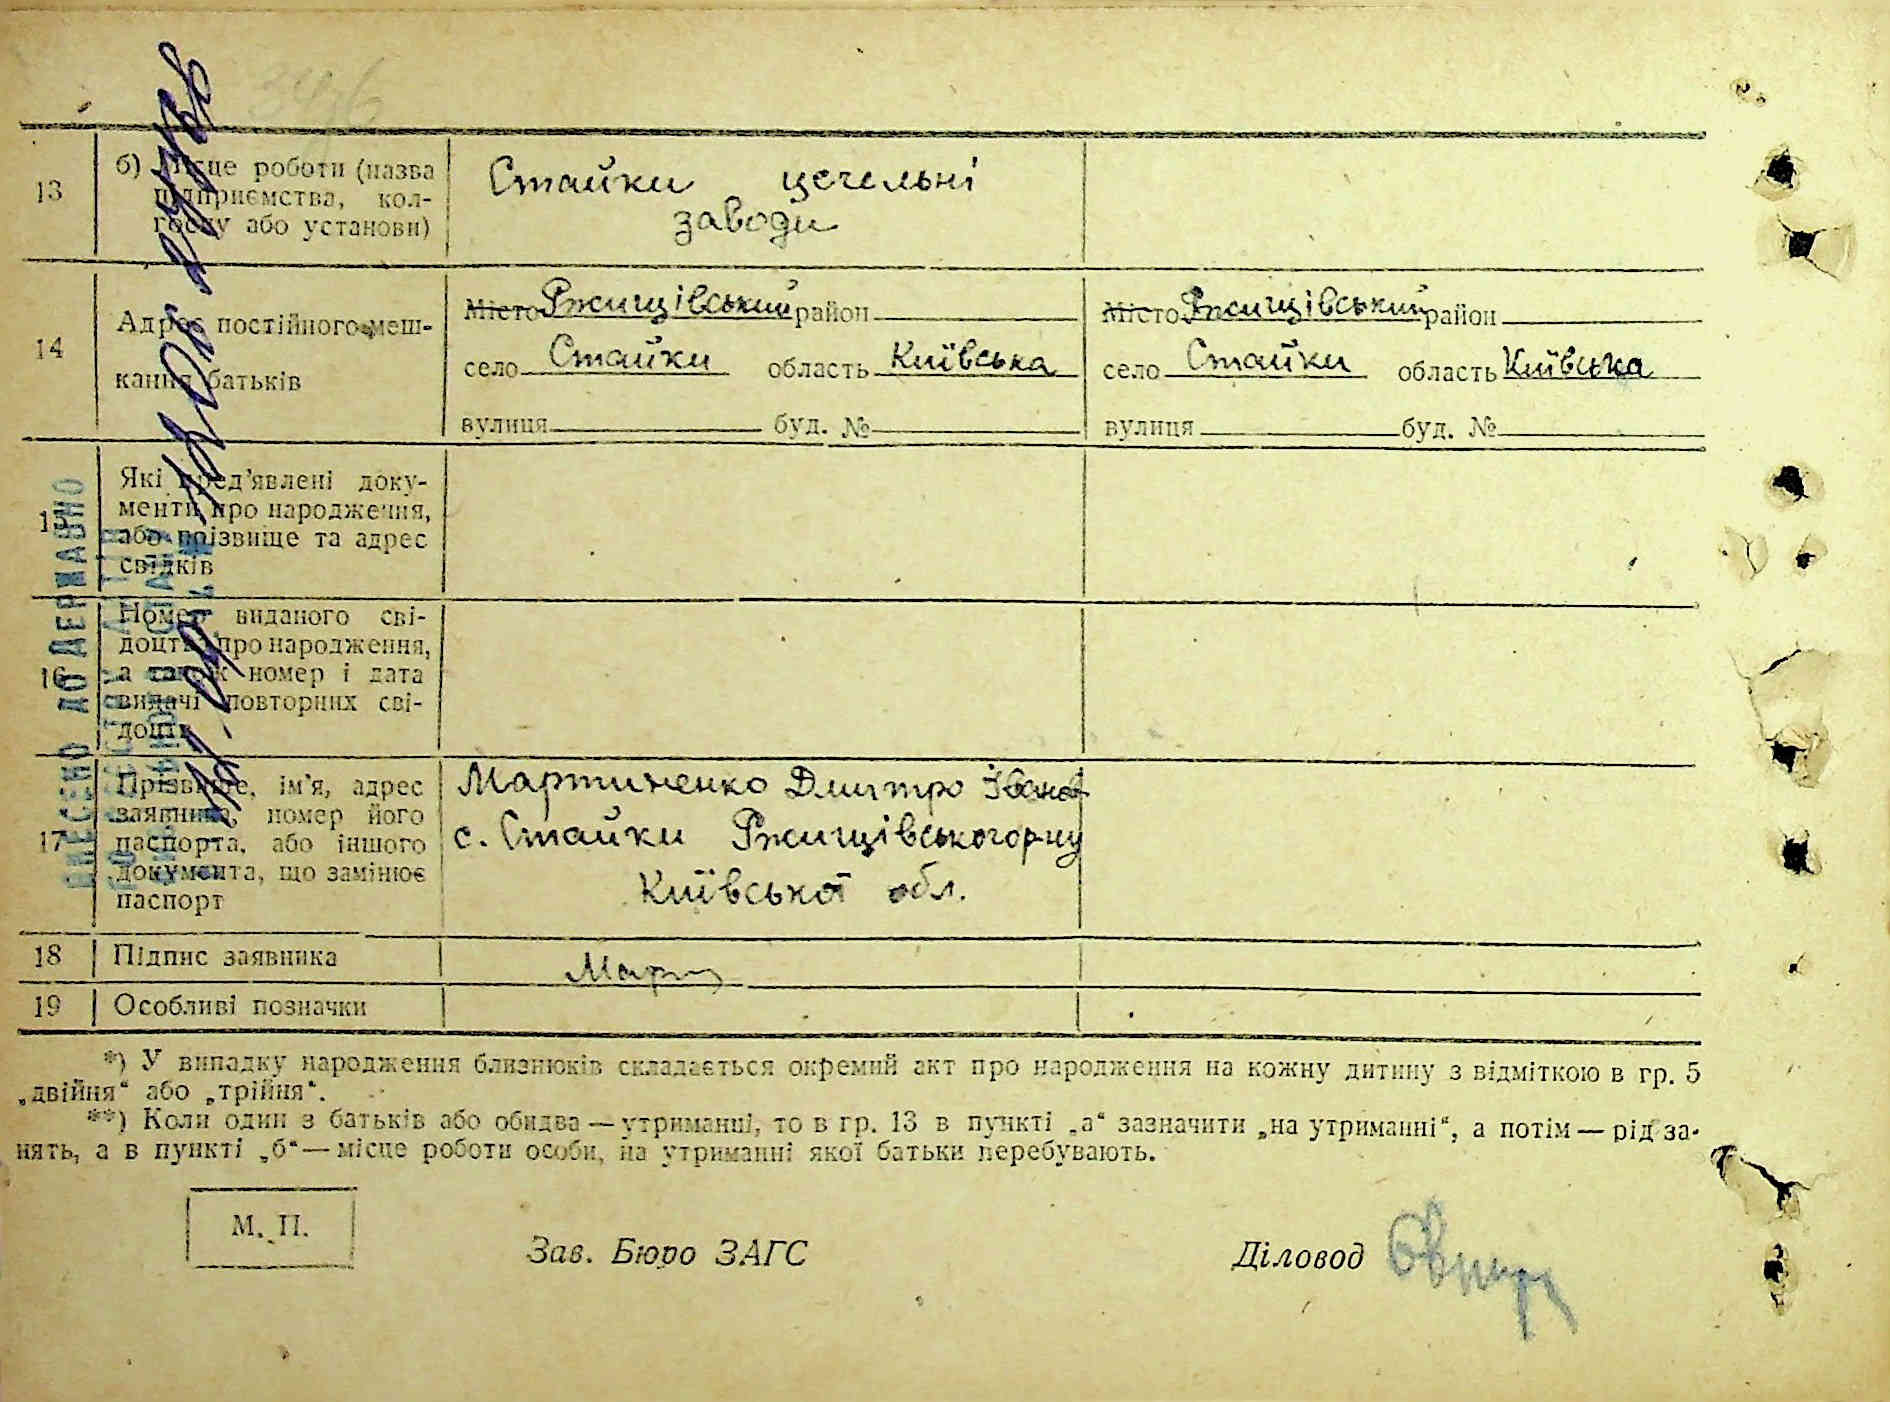 3476
13
б) Місце роботи (назва
підприємства, кол-
госпу або установи)
Стайки цегельні
заводи
14
Адрес постійного меш-
кання батьків
Місто Ржищівський район
село Стайки область Київська
вулиця буд. №
Місто Ржищівський район
село Стайки область Київська
вулиця буд. №
15
Які пред'явлені доку-
менти про народження,
або прізвище та адрес
свідків
16
Номер виданого сві-
доцтва про народження,
а також номер і дата
видачі повторних сві-
доцтв
17
Прізвище, ім'я, адрес
заявника, номер його
паспорта, або іншого
документа, що замінює
паспорт
Мартиненко Дмитро Іванов
с. Стайки Ржищівського р-ну
Київської обл.
18
Підпис заявника
Март
19
Особливі позначки
ВНЕСЕНО ДО ДЕРЖАВНО
*) У випадку народження близнюків складається окремий акт про народження на кожну дитину з відміткою в гр. 5
„двійня“ або „трійня“.
**) Коли один з батьків або обидва — утриманці, то в гр. 13 в пункті „а“ зазначити „на утриманні“, а потім — рід за-
нять, а в пункті „б“ — місце роботи особи, на утриманні якої батьки перебувають.
М. П.
Зав. Бюро ЗАГС
Діловод